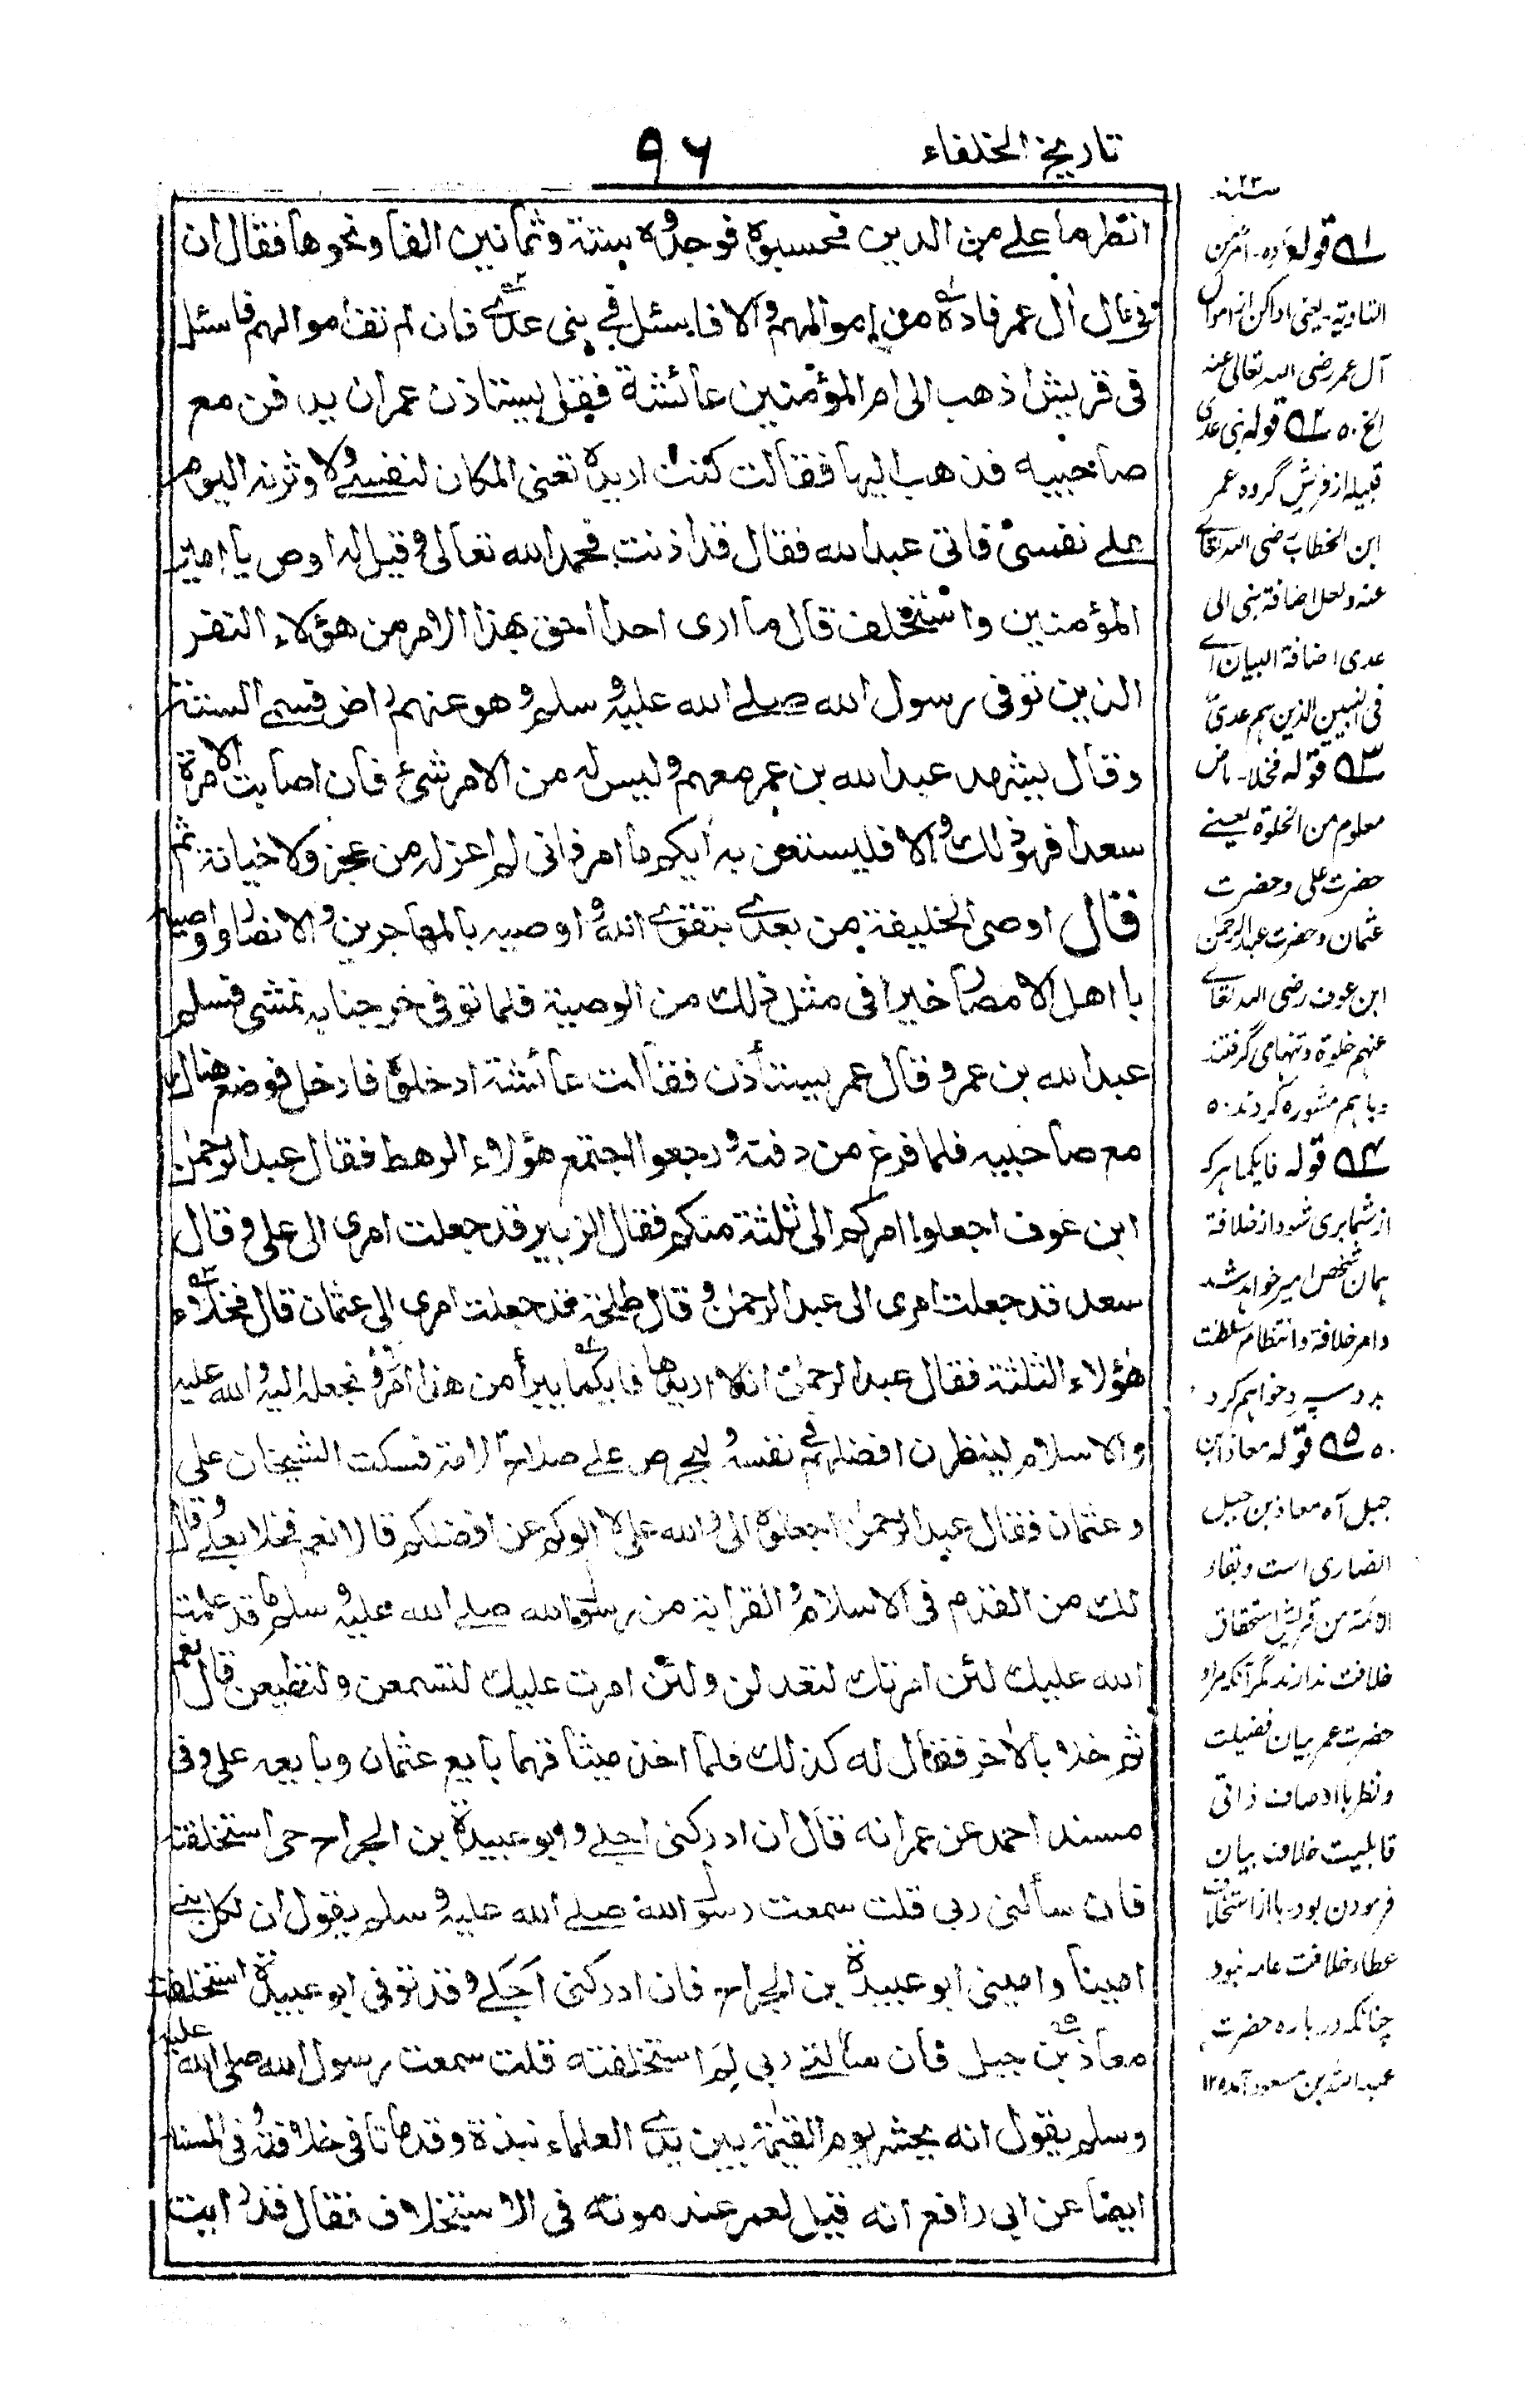 تاریخ الخلفاء
۹۶
انظر ما علے من الدين فحسبوہ فوجدوہ ستة وثمانين الفا ونحوها فقال ان
وفى مال اٰل عمر فادہ من اموالهم والا فاسئل فے بنى عدے فان لم تف اموالهم فاسئل
فى قريش اذهب الى ام المؤمنين عائشة فقل يستاذن عمر ان يدفن مع
صاحبيه فذهب اليها فقالت كنت اريدہ تعنى المكان لنفسے ولاوثرنه اليوم
علے نفسى فاتى عبدالله فقال قد اذنت فحمد الله تعالى وقيل له اوص يا امير
المؤمنين واستخلف قال ما ارى احدا احق بهذا الامر من هؤلاء النفر
الذين توفى رسول الله صلے الله عليه وسلم وهو عنهم راض فسمے الستة
وقال يشهد عبدالله بن عمر معهم وليس له من الامر شئ فان اصابت الامرة
سعدا فهو ذلك والا فليستعن به ايكم ما امر فانى لم اعزله من عجز ولا خيانة ثم
قال اوصى الخليفة من بعدے بتقوے الله واوصيه بالمهاجرين والانصار واوصيه
با اهل الامصار خيرا فى مثل ذلك من الوصية فلما توفى خرجنا به نمشى فسلم
عبدالله بن عمر وقال عمر يستأذن فقالت عائشة ادخلوہ فادخل فوضع هناك
مع صاحبيه فلما فرغ من دفنه ورجعوا اجتمع هؤلاء الرهط فقال عبدالرحمٰن
ابن عوف اجعلوا امركم الى ثلثة منكم فقال الزبير قد جعلت امرى الى على وقال
سعد قد جعلت امرى الى عبدالرحمٰن وقال طلحة قد جعلت امرى الى عثمان قال فخلا
هٰؤلاء الثلثة فقال عبدالرحمٰن انا لا اريدها فايكما يبرأ من هذا الامر ونجعله اليه والله عليه
والاسلام لينظرن افضلهم فے نفسه وليحرص علے صلاح الامة فسكت الشيخان على
وعثمان فقال عبدالرحمٰن اجعلوہ الى والله على لا الوكم عن افضلكم قالا نعم فخلا بعلے وقال
لك من القدم فى الاسلام والقرابة من رسول الله صلے الله عليه وسلم ما قد علمت
الله عليك لئن امرتك لتعدلن ولئن امرت عليك لتسمعن ولتطيعن قال نعم
ثم خلا بالاٰخر فقال له كذلك فلما اخذ ميثاقهما بايع عثمان وبايعه على وفى
مسند احمد عن عمر انه قال ان ادركنى اجلے وابو عبيدة بن الجراح حى استخلفته
فان سألنى ربى قلت سمعت رسول الله صلے الله عليه وسلم يقول ان لكل نبے
امينا وامينى ابو عبيدة بن الجراح فان ادركنى اجلے وقد توفى ابو عبيدة استخلفت
معاذ بن جبل فان سألنے ربى لم استخلفته قلت سمعت رسول الله صلى الله عليه
وسلم يقول انه يحشر يوم القيٰمة بين يدے العلماء نبذة وقد ماتا فى خلافته وفى المسند
ايضا عن ابى رافع انه قيل لعمر عند موته فى الاستخلاف فقال قد رايت
سنہ ۲۳
۱ قوله فادہ۔ امر من
التادیة۔ یعنی ادا کن از اموال
آل عمر رضی الله تعالی عنه
الخ ۵۰ ۲ قوله بنی عدی
قبیله از قریش گروہ عمر
ابن الخطاب رضی الله تعالے
عنه ولعل اضافة بنی الی
عدی اضافة البیان اے
فی البنین الذین هم عدی
۳ قوله فخلا۔ ماض
معلوم من الخلوة یعنے
حضرت علی و حضرت
عثمان و حضرت عبدالرحمٰن
ابن عوف رضی الله تعالے
عنهم خلوة و تنهای گرفتند
و باهم مشورہ کردند ۵۰
۴ قوله فایکما هرکہ
از شما بری شود از خلافة
همان شخص امیر خواهد شد
و امر خلافة و انتظام سلطنت
بدو سپرد خواهم کرد
۵۰ ۵ قوله معاذ بن
جبل آہ معاذ بن جبل
انصاری است و بمفاد
ائمة من قریش استحقاق
خلافت ندارند مگر آنکہ مراد
حضرت عمر بیان فضیلت
و نظر با اوصاف ذاتی
قابلیت خلافت بیان
فرمودن بود۔ یا از استخلاف
عطاء خلافت عامہ نبود
چنانکہ دربارہ حضرت
عبدالله بن مسعود آمدہ ۱۲